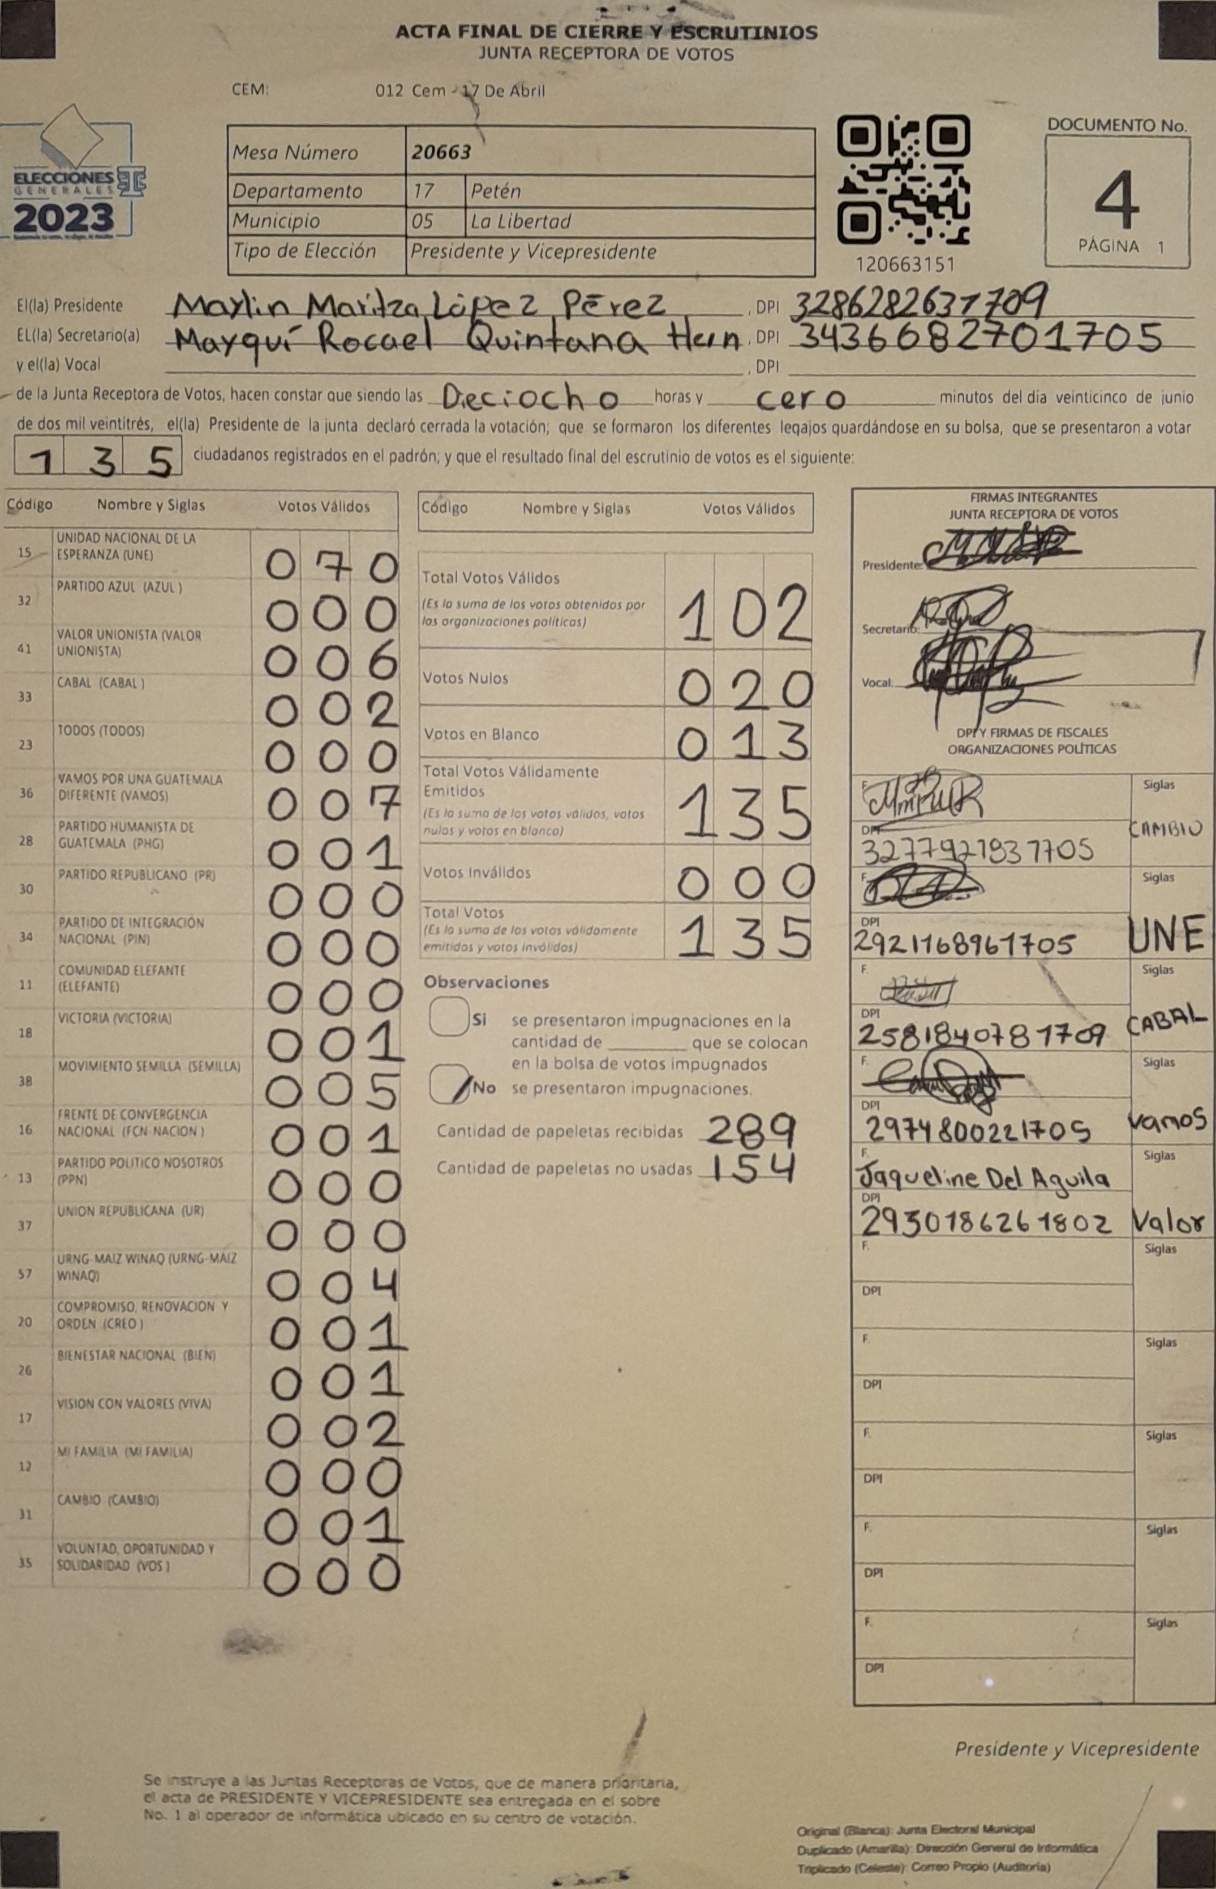 ACTA FINAL DE CIERRE Y ESCRUTINIOS
JUNTA RECEPTORA DE VOTOS
CEM: 012 Cem - 17 De Abril
ELECCIONES
GENERALES
2023
Mesa Número 20663
Departamento 17 Petén
Municipio 05 La Libertad
Tipo de Elección Presidente y Vicepresidente
120663151
DOCUMENTO No.
4
PÁGINA 1
El(la) Presidente Maylin Maritza López Pérez , DPI 3286282631709
EL(la) Secretario(a) Mayquí Rocael Quintana Hern , DPI 3436682701705
y el(la) Vocal , DPI
de la Junta Receptora de Votos, hacen constar que siendo las Dieciocho horas y cero minutos del día veinticinco de junio
de dos mil veintitrés, el(la) Presidente de la junta declaró cerrada la votación; que se formaron los diferentes legajos guardándose en su bolsa, que se presentaron a votar
135 ciudadanos registrados en el padrón; y que el resultado final del escrutinio de votos es el siguiente:
Código Nombre y Siglas Votos Válidos
15 UNIDAD NACIONAL DE LA ESPERANZA (UNE) 070
32 PARTIDO AZUL (AZUL ) 000
41 VALOR UNIONISTA (VALOR UNIONISTA) 006
33 CABAL (CABAL ) 002
23 TODOS (TODOS) 000
36 VAMOS POR UNA GUATEMALA DIFERENTE (VAMOS) 007
28 PARTIDO HUMANISTA DE GUATEMALA (PHG) 001
30 PARTIDO REPUBLICANO (PR) 000
34 PARTIDO DE INTEGRACIÓN NACIONAL (PIN) 000
11 COMUNIDAD ELEFANTE (ELEFANTE) 000
18 VICTORIA (VICTORIA) 001
38 MOVIMIENTO SEMILLA (SEMILLA) 005
16 FRENTE DE CONVERGENCIA NACIONAL (FCN-NACION ) 001
13 PARTIDO POLITICO NOSOTROS (PPN) 000
37 UNION REPUBLICANA (UR) 000
57 URNG-MAIZ WINAQ (URNG-MAIZ WINAQ) 004
20 COMPROMISO, RENOVACION Y ORDEN (CREO ) 001
26 BIENESTAR NACIONAL (BIEN) 001
17 VISION CON VALORES (VIVA) 002
12 MI FAMILIA (MI FAMILIA) 000
31 CAMBIO (CAMBIO) 001
35 VOLUNTAD, OPORTUNIDAD Y SOLIDARIDAD (VOS ) 000
Código Nombre y Siglas Votos Válidos
Total Votos Válidos 102
(Es la suma de los votos obtenidos por
las organizaciones políticas)
Votos Nulos 020
Votos en Blanco 013
Total Votos Válidamente
Emitidos 135
(Es la suma de los votos válidos, votos
nulos y votos en blanco)
Votos Inválidos 000
Total Votos 135
(Es la suma de los votos válidamente
emitidos y votos inválidos)
Observaciones
Si se presentaron impugnaciones en la
cantidad de que se colocan
en la bolsa de votos impugnados
No se presentaron impugnaciones.
Cantidad de papeletas recibidas 289
Cantidad de papeletas no usadas 154
FIRMAS INTEGRANTES
JUNTA RECEPTORA DE VOTOS
Presidente:
Secretario:
Vocal:
DPI Y FIRMAS DE FISCALES
ORGANIZACIONES POLÍTICAS
F. Siglas
DPI 3277921837705 CAMBIO
F. Siglas
DPI 2921168961705 UNE
F. Siglas
DPI 2581840781709 CABAL
F. Siglas
DPI 2974800221705 Vamos
F. Jaqueline Del Aguila Siglas
DPI 2930186261802 Valor
F. Siglas
DPI
F. Siglas
DPI
F. Siglas
DPI
F. Siglas
DPI
F. Siglas
DPI
Presidente y Vicepresidente
Se instruye a las Juntas Receptoras de Votos, que de manera prioritaria,
el acta de PRESIDENTE Y VICEPRESIDENTE sea entregada en el sobre
No. 1 al operador de informática ubicado en su centro de votación.
Original (Blanca): Junta Electoral Municipal
Duplicado (Amarilla): Dirección General de Informática
Triplicado (Celeste): Correo Propio (Auditoría)